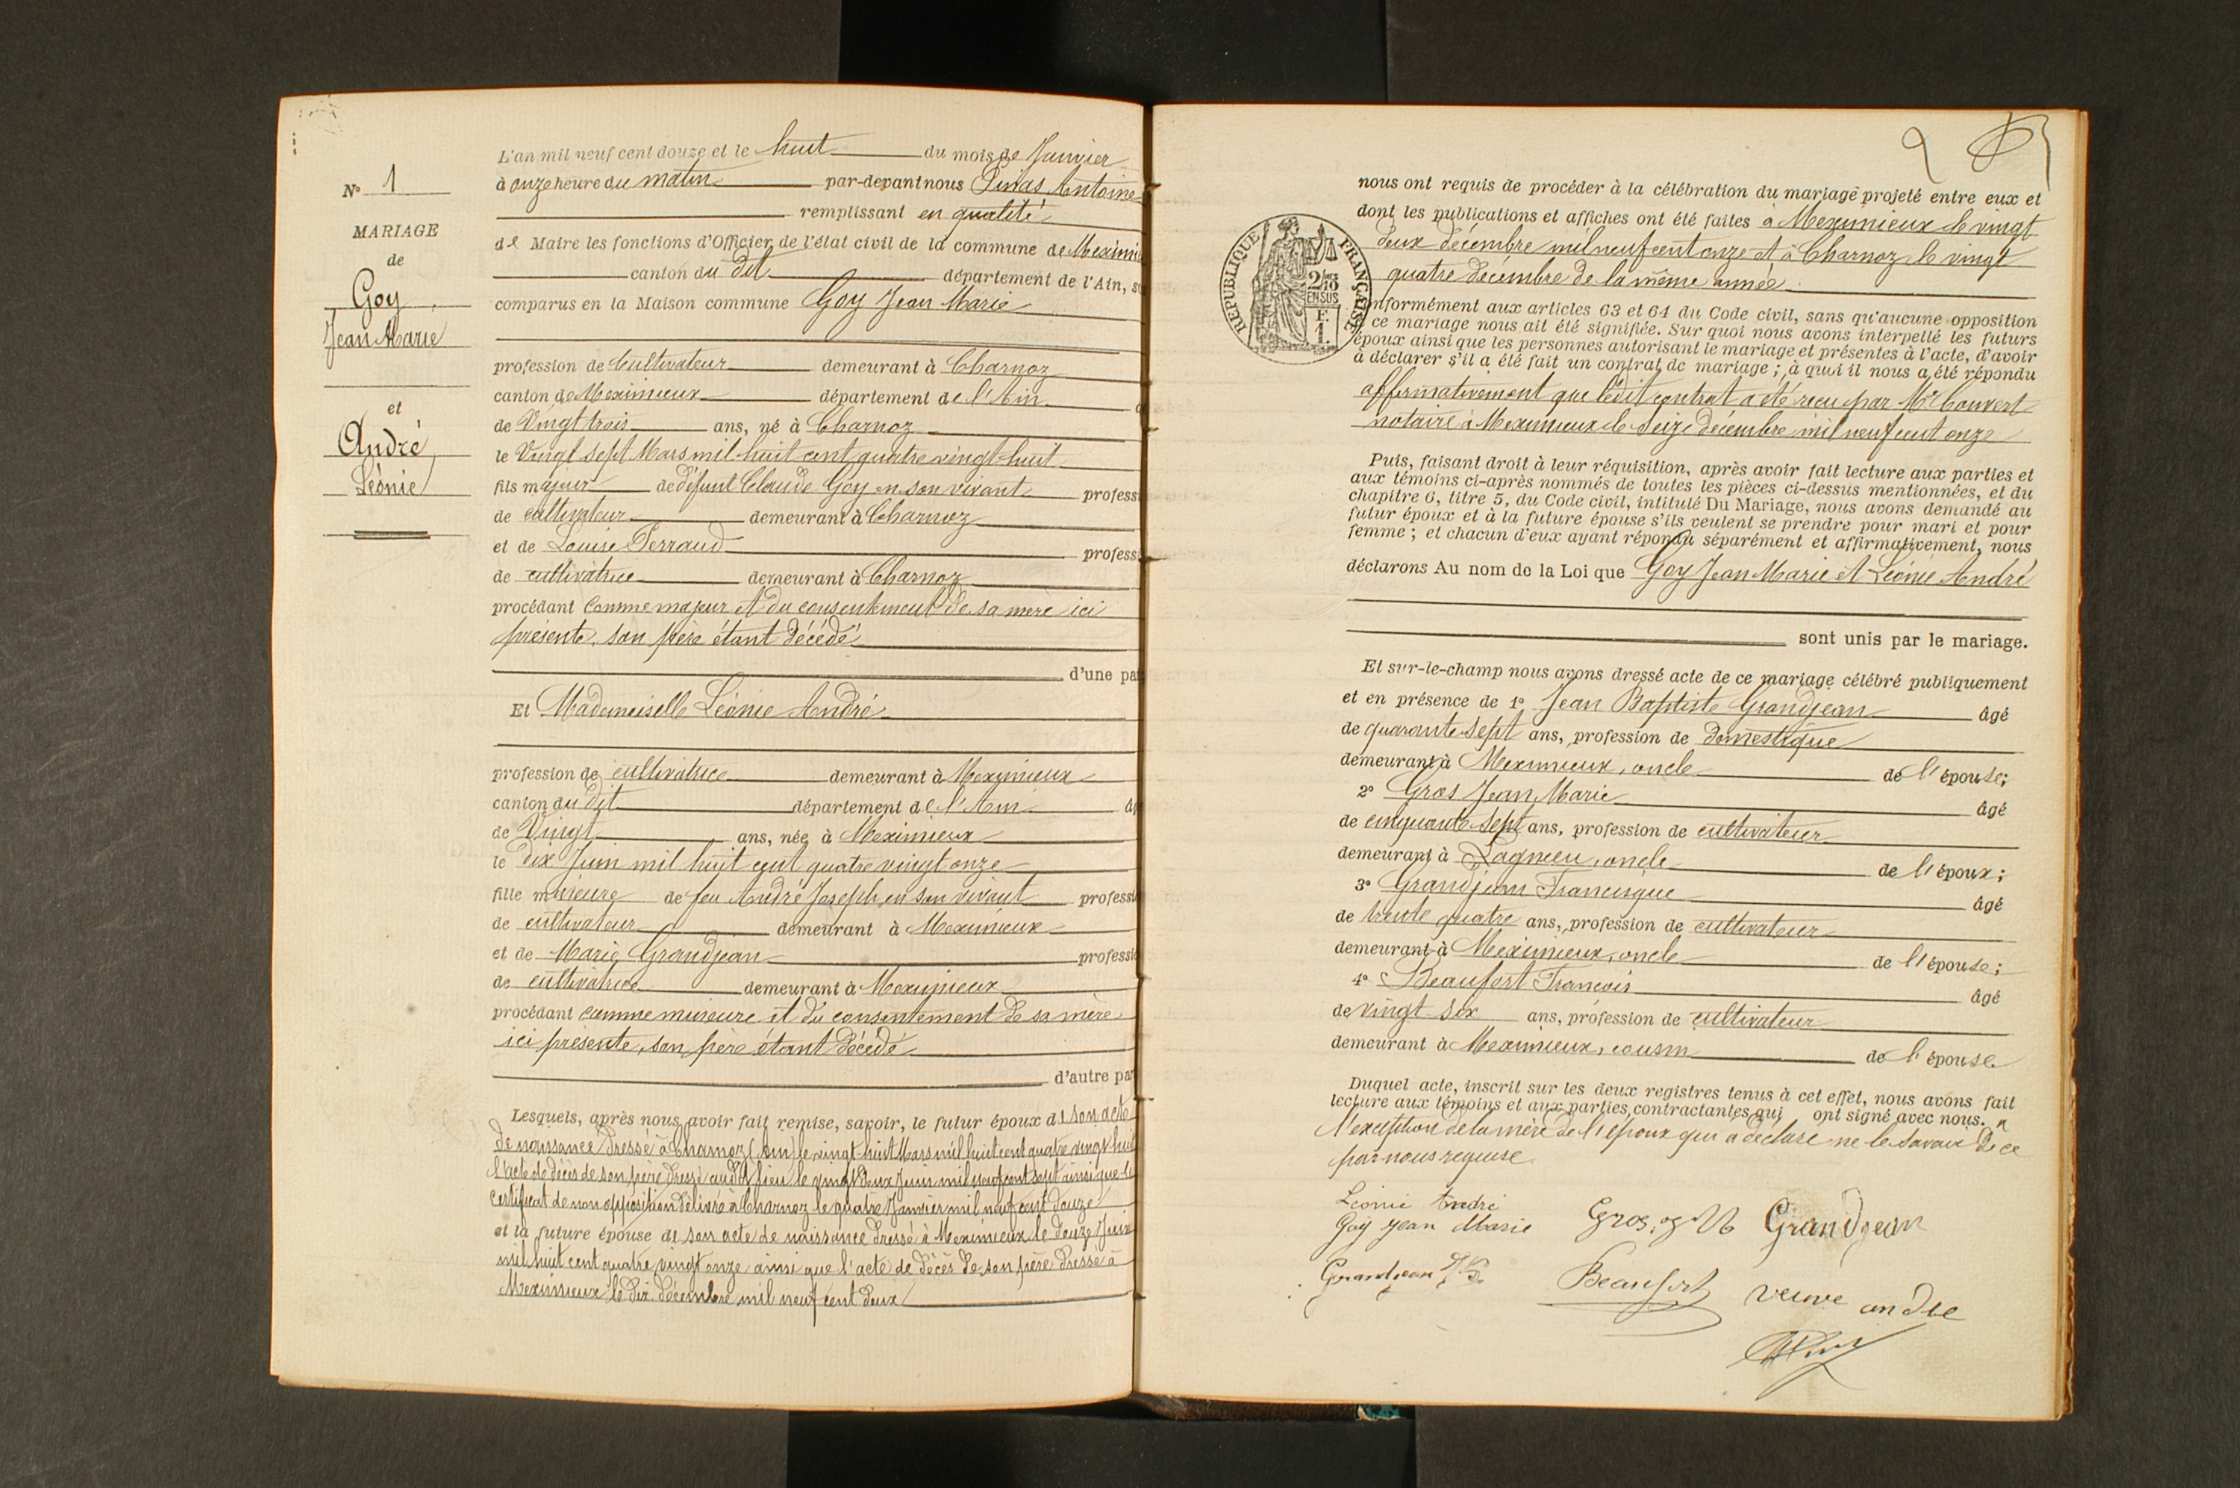 N° 1
MARIAGE
de
Goy
Jean Marie
et
André
Léonie
L'an mil neuf cent douze et le huit du mois de Janvier
à onze heure du matin par-devant nous Antoine
remplissant en qualité
de Maire les fonctions d'Officier de l'état civil de la commune de Meximi
canton du dit département de l'Ain, s
comparus en la Maison commune Goy Jean Marie
profession de Cultivateur demeurant à Charnoz
canton de Meximieux département de l'Ain
de Vingt trois ans, né à Charnoz
le Vingt sept Mars mil huit cent quatre vingt huit
fils majeur de défunt Claude Goy en son vivant profess
de cultivateur demeurant à Charnoz
et de Louise Ferraud profess
de cultivatrice demeurant à Charnoz
procédant comme majeur et du consentement de sa mère ici
présente, son père étant décédé
d'une pa
Et Mademoiselle Léonie André
profession de cultivatrice demeurant à Meximieux
canton du dit département de l'Ain âg
de Vingt ans, née à Meximieux
le dix Juin mil huit cent quatre vingt onze
fille mineure de feu André Joseph, en son vivant professi
de cultivateur demeurant à Meximieux
et de Marie Grandjean professio
de cultivatrice demeurant à Meximieux
procédant comme mineure et du consentement de sa mère
ici présente, son père étant décédé
d'autre par
Lesquels, après nous avoir fait remise, savoir, le futur époux de son acte
de naissance dressé à Charnoz (Ain) le vingt huit Mars mil huit cent quatre vingt huit
l'acte de décès de son père dressé audit lieu le vingt deux Juin mil neuf cent sept ainsi que le
certificat de non opposition délivré à Charnoz le quatre Janvier mil neuf cent douze
et la future épouse de son acte de naissance dressé à Meximieux le douze Juin
mil huit cent quatre vingt onze ainsi que l'acte de décès de son père dressé à
Meximieux le dix décembre mil neuf cent deux
2
RÉPUBLIQUE FRANÇAISE
2/10
EN SUS
F.
1.
nous ont requis de procéder à la célébration du mariage projeté entre eux et
dont les publications et affiches ont été faites à Meximieux le vingt
deux décembre mil neuf cent onze et à Charnoz le vingt
quatre décembre de la même année
nformément aux articles 63 et 64 du Code civil, sans qu'aucune opposition
ce mariage nous ait été signifiée. Sur quoi nous avons interpellé les futurs
époux ainsi que les personnes autorisant le mariage et présentes à l'acte, d'avoir
à déclarer s'il a été fait un contrat de mariage ; à quoi il nous a été répondu
affirmativement que ledit contrat a été reçu par Mr Convert
notaire à Meximieux le Seize décembre mil neuf cent onze
Puis, faisant droit à leur réquisition, après avoir fait lecture aux parties et
aux témoins ci-après nommés de toutes les pièces ci-dessus mentionnées, et du
chapitre 6, titre 5, du Code civil, intitulé Du Mariage, nous avons demandé au
futur époux et à la future épouse s'ils veulent se prendre pour mari et pour
femme ; et chacun d'eux ayant répondu séparément et affirmativement, nous
déclarons Au nom de la Loi que Goy Jean Marie et Léonie André
sont unis par le mariage.
Et sur-le-champ nous avons dressé acte de ce mariage célébré publiquement
et en présence de 1° Jean Baptiste Grandjean âgé
de quarante sept ans, profession de domestique
demeurant à Meximieux, oncle de l'épouse;
2° Gros Jean Marie âgé
de cinquante sept ans, profession de cultivateur
demeurant à Lagnieu, oncle de l'époux;
3° Grandjean Francisque âgé
de trente quatre ans, profession de cultivateur
demeurant à Meximieux, oncle de l'épouse;
4° Beaufort Francois âgé
de vingt six ans, profession de cultivateur
demeurant à Meximieux, cousin de l'épouse
Duquel acte, inscrit sur les deux registres tenus à cet effet, nous avons fait
lecture aux témoins et aux parties contractantes qui ont signé avec nous. a
l'exception de la mère de l'époux qui a déclaré ne le savoir de ce
par nous requise
Léonie André
Goy Jean Marie
Gros
Grandjean
Grandjean
Beaufort
veuve andre